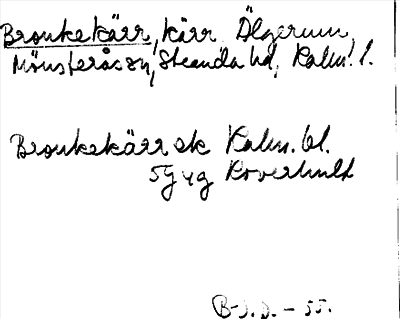 Bronkekärr, kärr Älgerum,
Mönsterås sn, Stranda hd, Kalm. l.
Bronkekärr ek Kalm. bl.
5G 4g Roverhult
B-J.D. - 55.